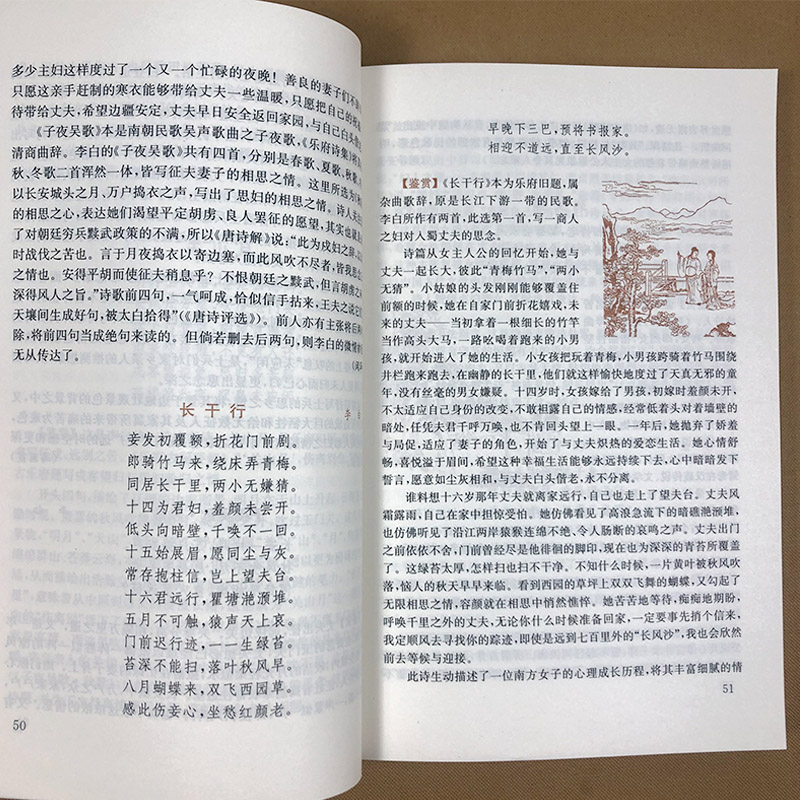 多少主妇这样度过了一个又一个忙碌的夜晚！善良的妻子们不
只愿这亲手赶制的寒衣能够带给丈夫一些温暖，只愿把自己的
待带给丈夫，希望边疆安定，丈夫早日安全返回家园，与自己白头
《子夜吴歌》本是南朝民歌吴声歌曲之子夜歌，《乐府诗集》
清商曲辞。李白的《子夜吴歌》共有四首，分别是春歌、夏歌、秋歌、
秋、冬歌二首浑然一体，皆写征夫妻子的相思之情。这里所选为
以长安城头之月、万户捣衣之声，写出了思妇的相思之情。诗人
的相思之心，表达她们渴望平定胡虏、良人罢征的愿望，其实也
了对朝廷穷兵黩武政策的不满，所以《唐诗解》说：“此为戍妇之辞
时战伐之苦也。言于月夜捣衣以寄边塞，而此风吹不尽者，皆我思
之情也。安得平胡而使征夫稍息乎？不恨朝廷之黩武，但言胡虏之
深得风人之旨。”诗歌前四句，一气呵成，恰似信手拈来，王夫之说它
天壤间生成好句，被太白拾得”（《唐诗评选》）。前人亦有主张将后两
除，将前四句当成绝句来读的。但倘若删去后两句，则李白的微情
无从传达了。
长干行
李
妾发初覆额，折花门前剧。
郎骑竹马来，绕床弄青梅。
同居长干里，两小无嫌猜。
十四为君妇，羞颜未尝开。
低头向暗壁，千唤不一回。
十五始展眉，愿同尘与灰。
常存抱柱信，岂上望夫台。
十六君远行，瞿塘滟滪堆。
五月不可触，猿声天上哀。
门前迟行迹，一一生绿苔。
苔深不能扫，落叶秋风早。
八月蝴蝶来，双飞西园草。
感此伤妾心，坐愁红颜老。
50
早晚下三巴，预将书报家。
相迎不道远，直至长风沙。
【鉴赏】《长干行》本为乐府旧题，属
杂曲歌辞，原是长江下游一带的民歌。
李白所作有两首，此选第一首，写一商人
之妇对入蜀丈夫的思念。
诗篇从女主人公的回忆开始，她与
丈夫一起长大，彼此“青梅竹马”，“两小
无猜”。小姑娘的头发刚刚能够覆盖住
前额的时候，她在自家门前折花嬉戏，未
来的丈夫——当初拿着一根细长的竹竿
当作高头大马，一路吆喝着跑来的小男
孩，就开始进入了她的生活。小女孩把玩着青梅，小男孩跨骑着竹马围绕
井栏跑来跑去，在幽静的长干里，他们就这样愉快地度过了天真无邪的童
年，没有丝毫的男女嫌疑。十四岁时，女孩嫁给了男孩，初嫁时羞颜未开，
不太适应自己身份的改变，不敢袒露自己的情感，经常低着头对着墙壁的
暗处，任凭夫君千呼万唤，也不肯回头望上一眼。一年后，她抛弃了娇羞
与局促，适应了妻子的角色，开始了与丈夫炽热的爱恋生活。她心情舒
畅，喜悦溢于眉间，希望这种幸福生活能够永远持续下去，心中暗暗发下
誓言，愿意如尘灰相和，与丈夫白头偕老，永不分离。
谁料想十六岁那年丈夫就离家远行，自己也走上了望夫台。丈夫风
霜雾雨，自己在家中担惊受怕。她仿佛看见了高浪急流下的暗礁滟滪堆，
也仿佛听见了沿江两岸猿猴连绵不绝、令人肠断的哀鸣之声。丈夫出门
之前依依不舍，门前曾经尽是他徘徊的脚印，现在也为深深的青苔所覆盖
了。这绿苔太厚，怎样扫也扫不干净。不知什么时候，一片黄叶被秋风吹
落，恼人的秋天早早来临。看到西园的草坪上双双飞舞的蝴蝶，又勾起了
无限相思之情，容颜就在相思中悄然憔悴。她苦苦地等待，痴痴地期盼，
呼唤千里之外的丈夫，无论你什么时候准备回家，一定要事先捎个信来，
我定顺风去寻找你的踪迹，即使是远到七百里外的“长风沙”，我也会欣然
前去等候与迎接。
此诗生动描述了一位南方女子的心理成长历程，将其丰富细腻的情
51